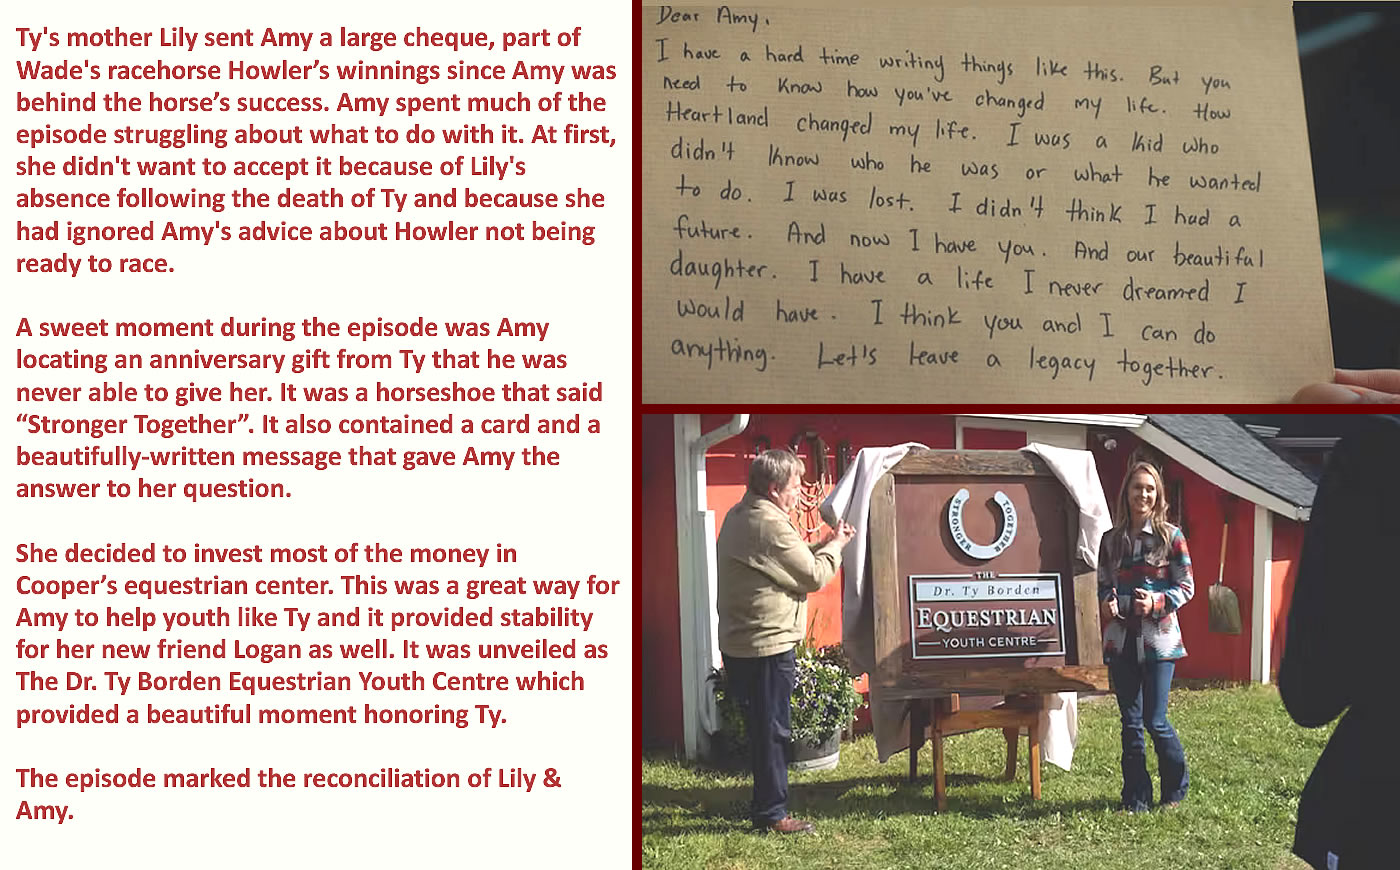 Ty's mother Lily sent Amy a large cheque, part of
Wade's racehorse Howler’s winnings since Amy was
behind the horse’s success. Amy spent much of the
episode struggling about what to do with it. At first,
she didn't want to accept it because of Lily's
absence following the death of Ty and because she
had ignored Amy's advice about Howler not being
ready to race.
A sweet moment during the episode was Amy
locating an anniversary gift from Ty that he was
never able to give her. It was a horseshoe that said
“Stronger Together”. It also contained a card and a
beautifully-written message that gave Amy the
answer to her question.
She decided to invest most of the money in
Cooper’s equestrian center. This was a great way for
Amy to help youth like Ty and it provided stability
for her new friend Logan as well. It was unveiled as
The Dr. Ty Borden Equestrian Youth Centre which
provided a beautiful moment honoring Ty.
The episode marked the reconciliation of Lily &
Amy.
Dear Amy,
I have a hard time writing things like this. But you
need to know how you've changed my life. How
Heartland changed my life. I was a kid who
didn't know who he was or what he wanted
to do. I was lost. I didn't think I had a
future. And now I have you. And our beautiful
daughter. I have a life I never dreamed I
would have. I think you and I can do
anything. Let's leave a legacy together.
STRONGER TOGETHER
THE
Dr. Ty Borden
EQUESTRIAN
YOUTH CENTRE